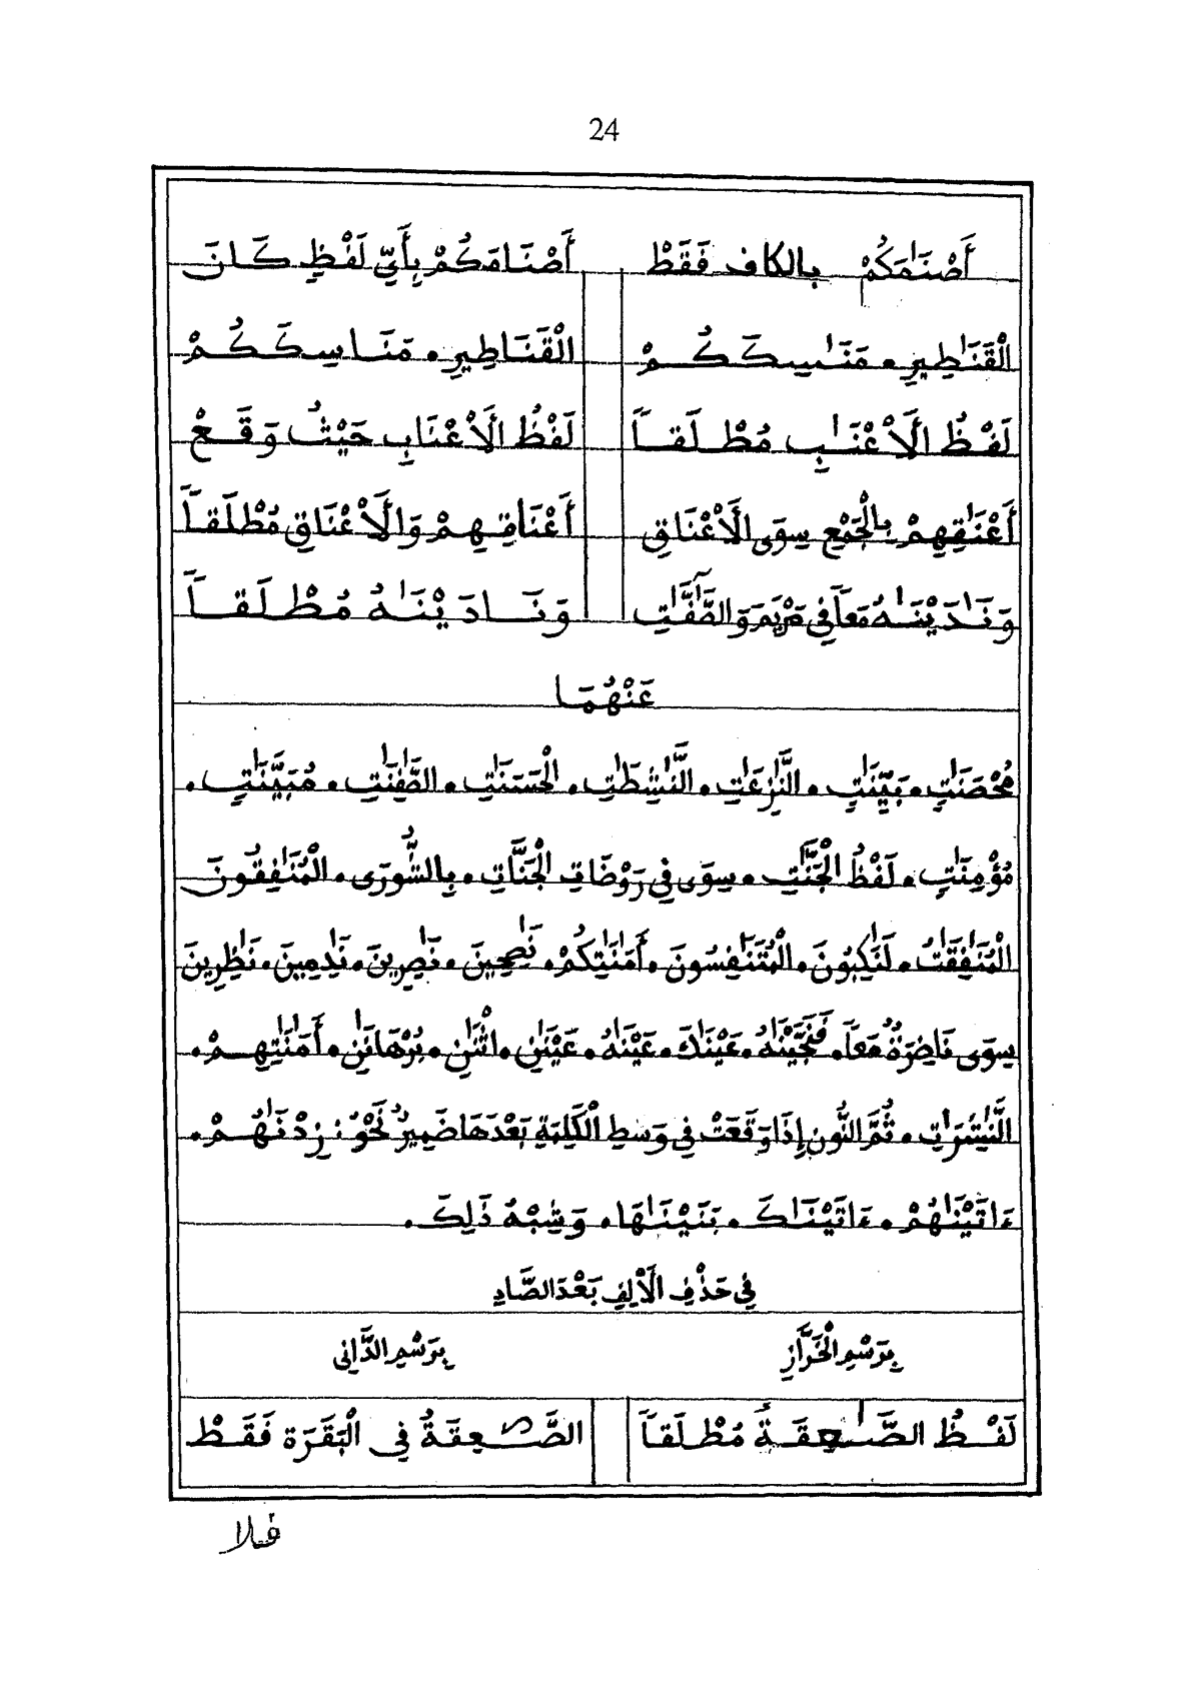 24
أَصْنَٰمَكُمْ بالكاف فَقَطْ أَصْنَامَكُمْ بِأَيِّ لَفْظٍ كَانَ
الْقَنَٰطِيرِ • مَنَٰسِكَكُمْ الْقَنَاطِيرِ • مَنَاسِكَكُمْ
لَفْظُ الَاعْنَٰبِ مُطْلَقاً لَفْظُ الَاعْنَابِ حَيْثُ وَقَعْ
أَعْنَٰقِهِمْ بِالْجَمْعِ سِوَى الَاعْنَاقِ أَعْنَاقِهِمْ وَالَاعْنَاقِ مُطْلَقاً
وَنَٰدَيْنَٰهُ مَعاً فِي مَرْيَمَ وَالصَّٰٓفَّٰتِ وَنَادَيْنَٰهُ مُطْلَقاً
عَنْهُمَا
مُحْصَنَٰتٍ • بَيِّنَٰتٍ • النَّٰزِعَٰتِ • النَّٰشِطَٰتِ • الْحَسَنَٰتِ • الصَّٰفِنَٰتِ • مُبَيِّنَٰتٍ •
مُؤْمِنَٰتٍ • لَفْظُ الْجَنَّٰتِ • سِوَى فِي رَوْضَاتِ الْجَنَّاتِ • بِالشُّورَى • الْمُنَٰفِقُونَ
الْمُنَٰفِقَٰتُ • لَنَٰكِبُونَ • الْمُتَنَٰفِسُونَ • أَمَٰنَٰتِكُمْ • نَٰصِحِينَ • نَٰصِرِينَ • نَٰدِمِينَ • نَٰظِرِينَ
سِوَى نَاضِرَةٌ مَعاً • فَنَجَّيْنَٰهُ • عَيْنَٰكَ • عَيْنَٰهُ • عَيْنَٰنِ • اثْنَٰنِ • بُرْهَانَٰنِ • أَمَٰنَٰتِهِمْ •
النَّٰشِرَٰتِ • ثُمَّ النُّونِ إِذَا وَقَعَتْ فِي وَسطِ الْكَلِمَةِ بَعْدَهَا ضَمِيرٌ نَحْوُ : زِدْنَٰهُمْ •
ءَاتَيْنَٰهُمْ • ءَاتَيْنَٰكَ • بَنَيْنَٰهَا • وَشِبْهُ ذَلِكَ •
فِي حَذْفِ الَالِفِ بَعْدَ الصَّادِ
بِرَسْمِ الْخَرَّازِ بِرَسْمِ الدَّانِي
لَفْظُ الصَّٰعِقَةُ مُطْلَقاً الصَّٰعِقَةُ فِي الْبَقَرَة فَقَطْ
فلا